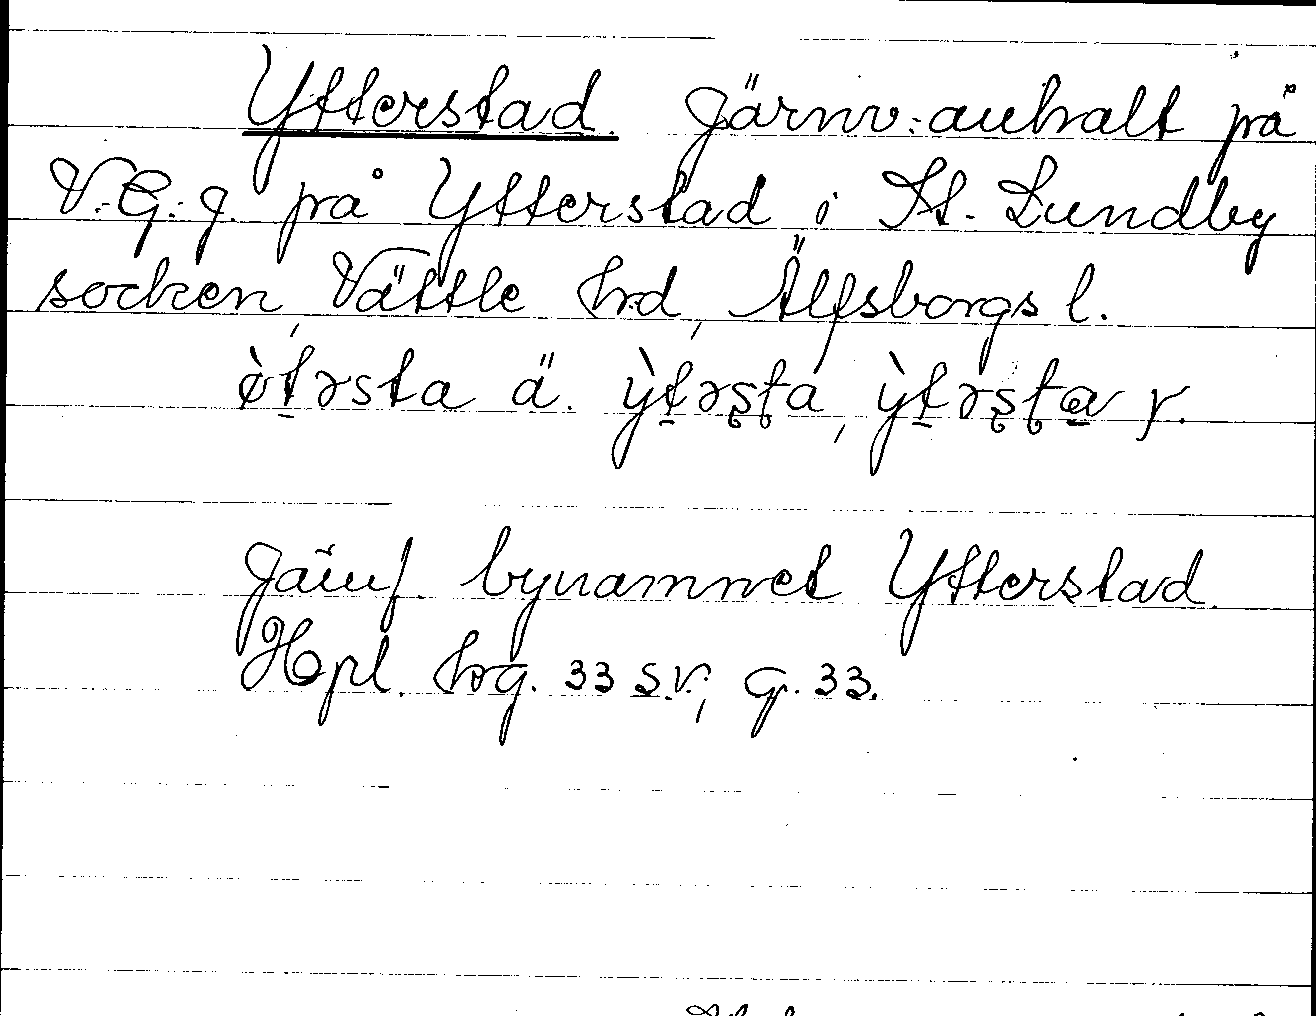 Ytterstad. Järnv:anhalt på
V.-G:g. på Ytterstad i St. Lundby
socken, Vättle hd, Älfsborgs l.
ø̀t̲ərsta ä. ỳt̲əʂʈa, ỳt̲əʂʈa̲ y.
Jämf. bynamnet Ytterstad.
Hpl. hrg. 33 S.V., G. 33.